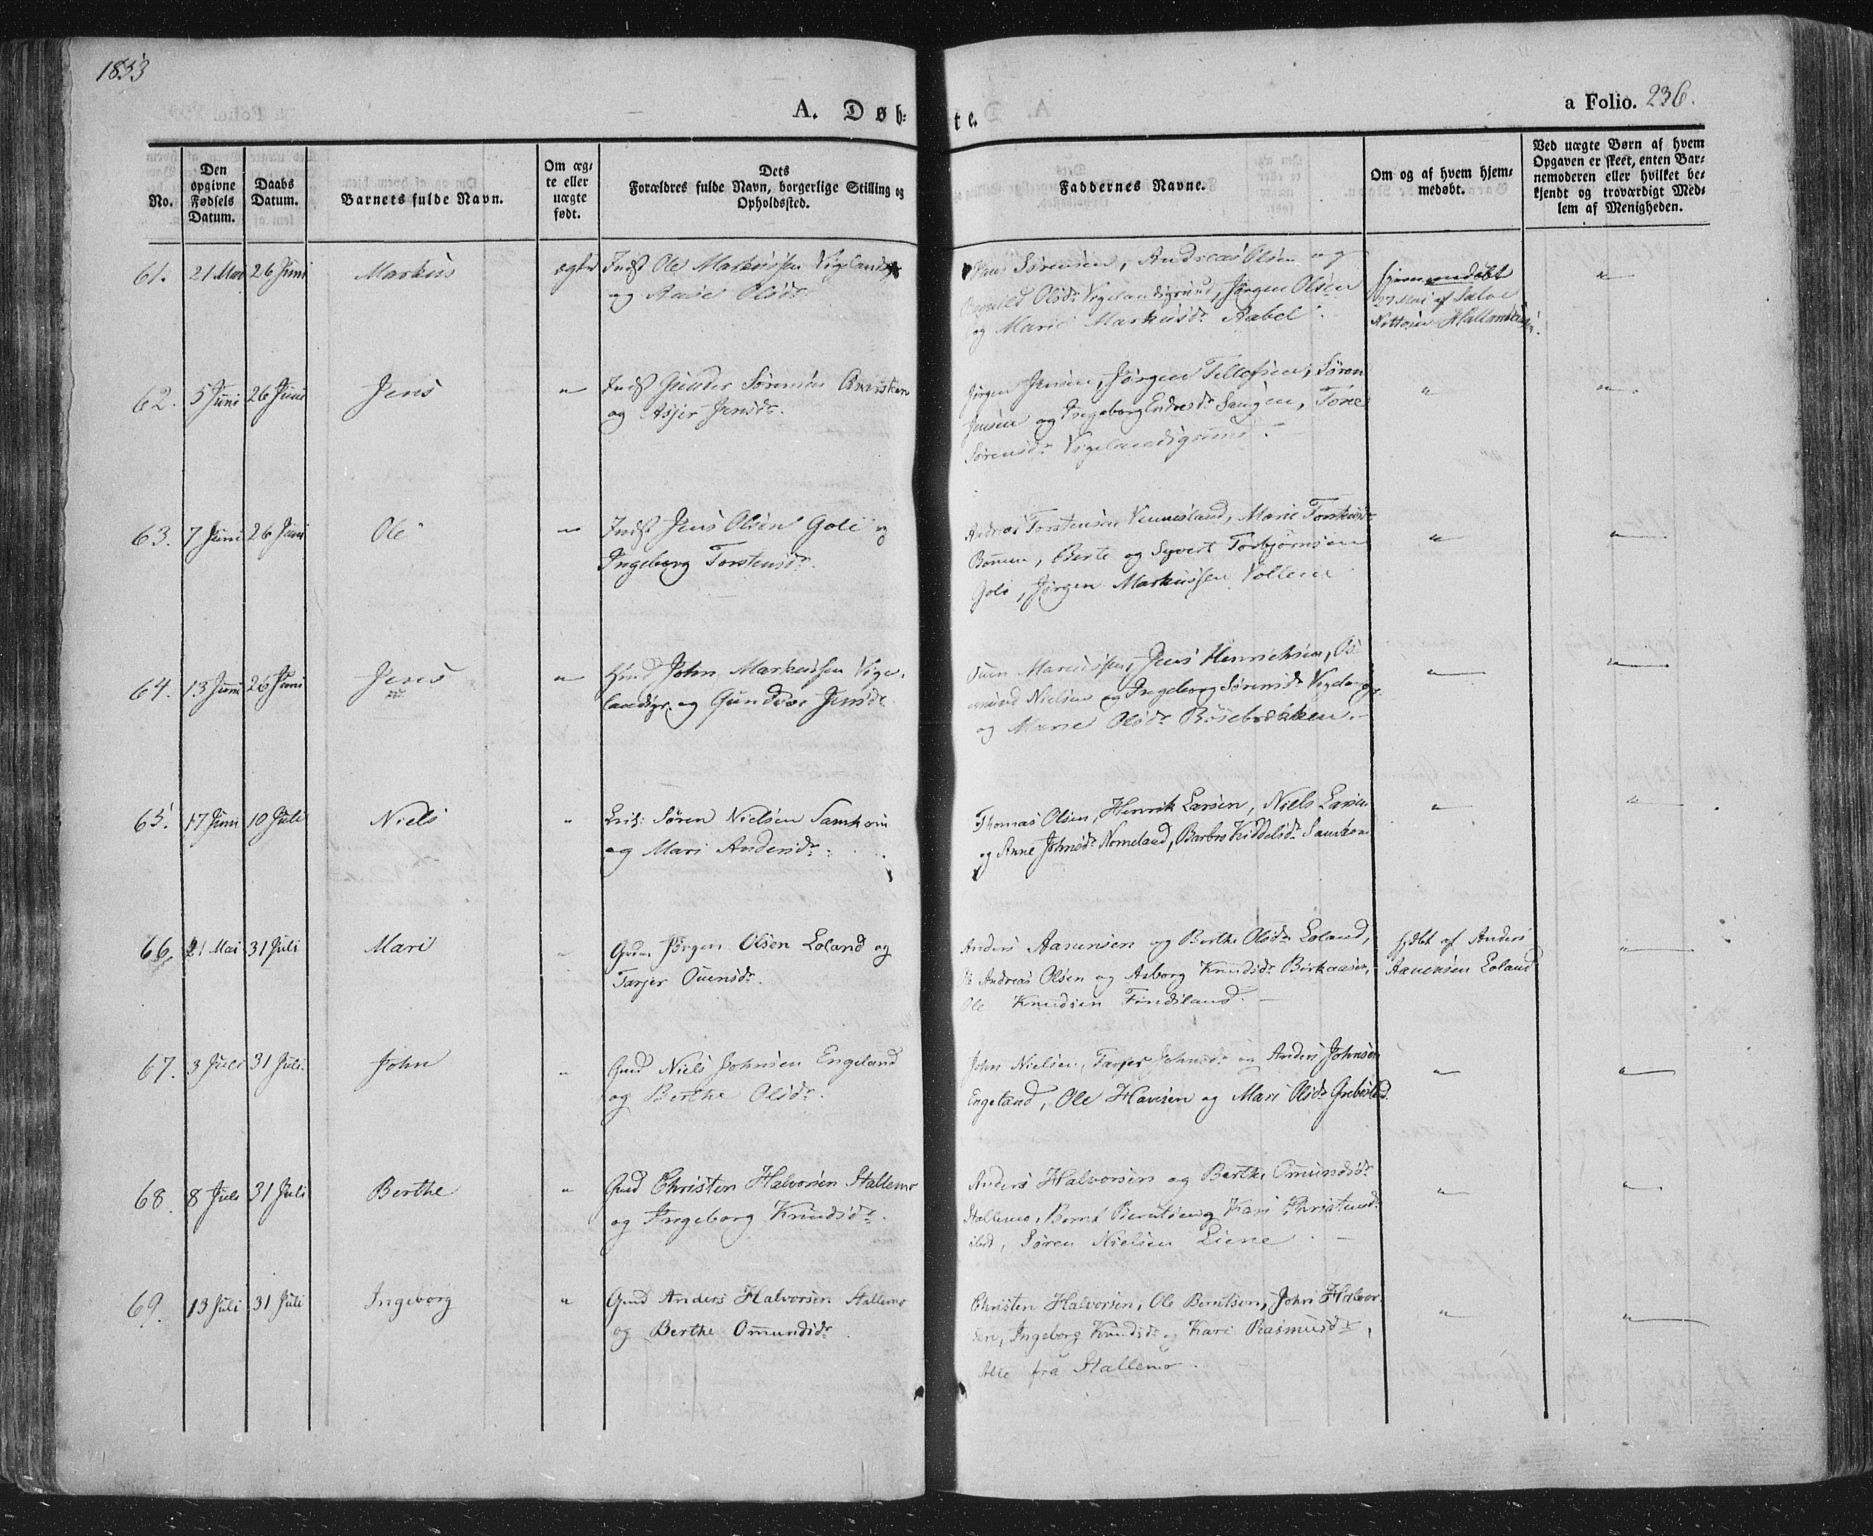 1853
A. Døb-
te.
a Folio. 236.
No.
Den opgivne Fødsels Datum.
Daabs Datum.
Barnets fulde Navn.
Om ægte eller uægte født.
Dets Forældres fulde Navn, borgerlige Stilling og Opholdssted.
Faddernes Navne.
Om og af hvem hjemmedøbt.
Ved uægte Børn af hvem Opgaven er skeet, enten Barnemoderen eller hvilket bekjendt og troværdigt Medlem af Menigheden.
61. 21 Mai 26 Juni Markus ægte Indst Ole Markussen
og Anne Olsdr
Hans Sørensen, Andreas Olsen og
Olsdr Vigelandsgrund, Jørgen Olsen
og Marie Markusdr Aabel.
hjemmedøbt
af Salve
62. 5 Juni 26 Juni Jens " Indst Gunder Sørensen
og Asjer Jensdr.
Jørgen Jensen, Jørgen Tellofsen, Søren
Jensen og Ingeborg Endresdr Saugen, Tone
Sørensdr Vigelandsgrund.
" "
63. 7 Juni 26 Juni Ole " Indst Jens Olsen Gole og
Ingeborg Torstensdr.
Andreas Torstensen Vennesland, Marie
, Berte og Syvert Torbjørnsen
Gole, Jørgen Markussen Vollene
" "
64. 13 Juni 26 Juni Jens " John Markussen Vige-
landsgr. og Gundvor Jensdr
Ouen Markussen, Jens Henrichsen,
Nielsen og Ingeborg Sørensdr
og Marie Olsdr Bøsebrækken.
" "
65. 17 Juni 10 Juli Niels " Søren Nielsen Samkom
og Mari Andersdr.
Thomas Olsen, Henrik Larsen, Niels Larsen
og Anne Johnsdr Nomeland, Barbro Kiddelsdr Samkom
" "
66. 21 Mai 31 Juli Mari " Gmd. Jørgen Olsen Loland og
Tarjer Ouensdr.
Anders Aanensen og Berthe Olsdr Loland,
Andreas Olsen og Asborg Knudsdr Birkaasen,
Ole Knudsen Findsland.
hjdbt af Anders
Aanensen Loland
"
67. 3 Juli 31 Juli. John " Gmd Niels Johnsen Engeland
og Berthe Olsdr.
John Nielsen, Tarjer Johnsdr og Anders Johnsen
Engeland, Ole Havesen og Mari Olsdr
" "
68. 8 Juli 31 Juli Berthe " Gmd Christen Halvorsen Stallemo
og Ingeborg Knudsdr.
Anders Halvorsen og Berthe Omundsdr
Stallemo, Bernt Berntsen og Kari
, Søren Nielsen Liene.
" "
69. 13 Juli 31 Juli Ingeborg " Gmd Anders Halvorsen Stallemo
og Berthe Omundsdr.
Christen Halvorsen, Ole Berntsen, John Halvor-
sen, Ingeborg Knudsdr og Kari Rasmusdr,
Alle fra Stallemo.
" "